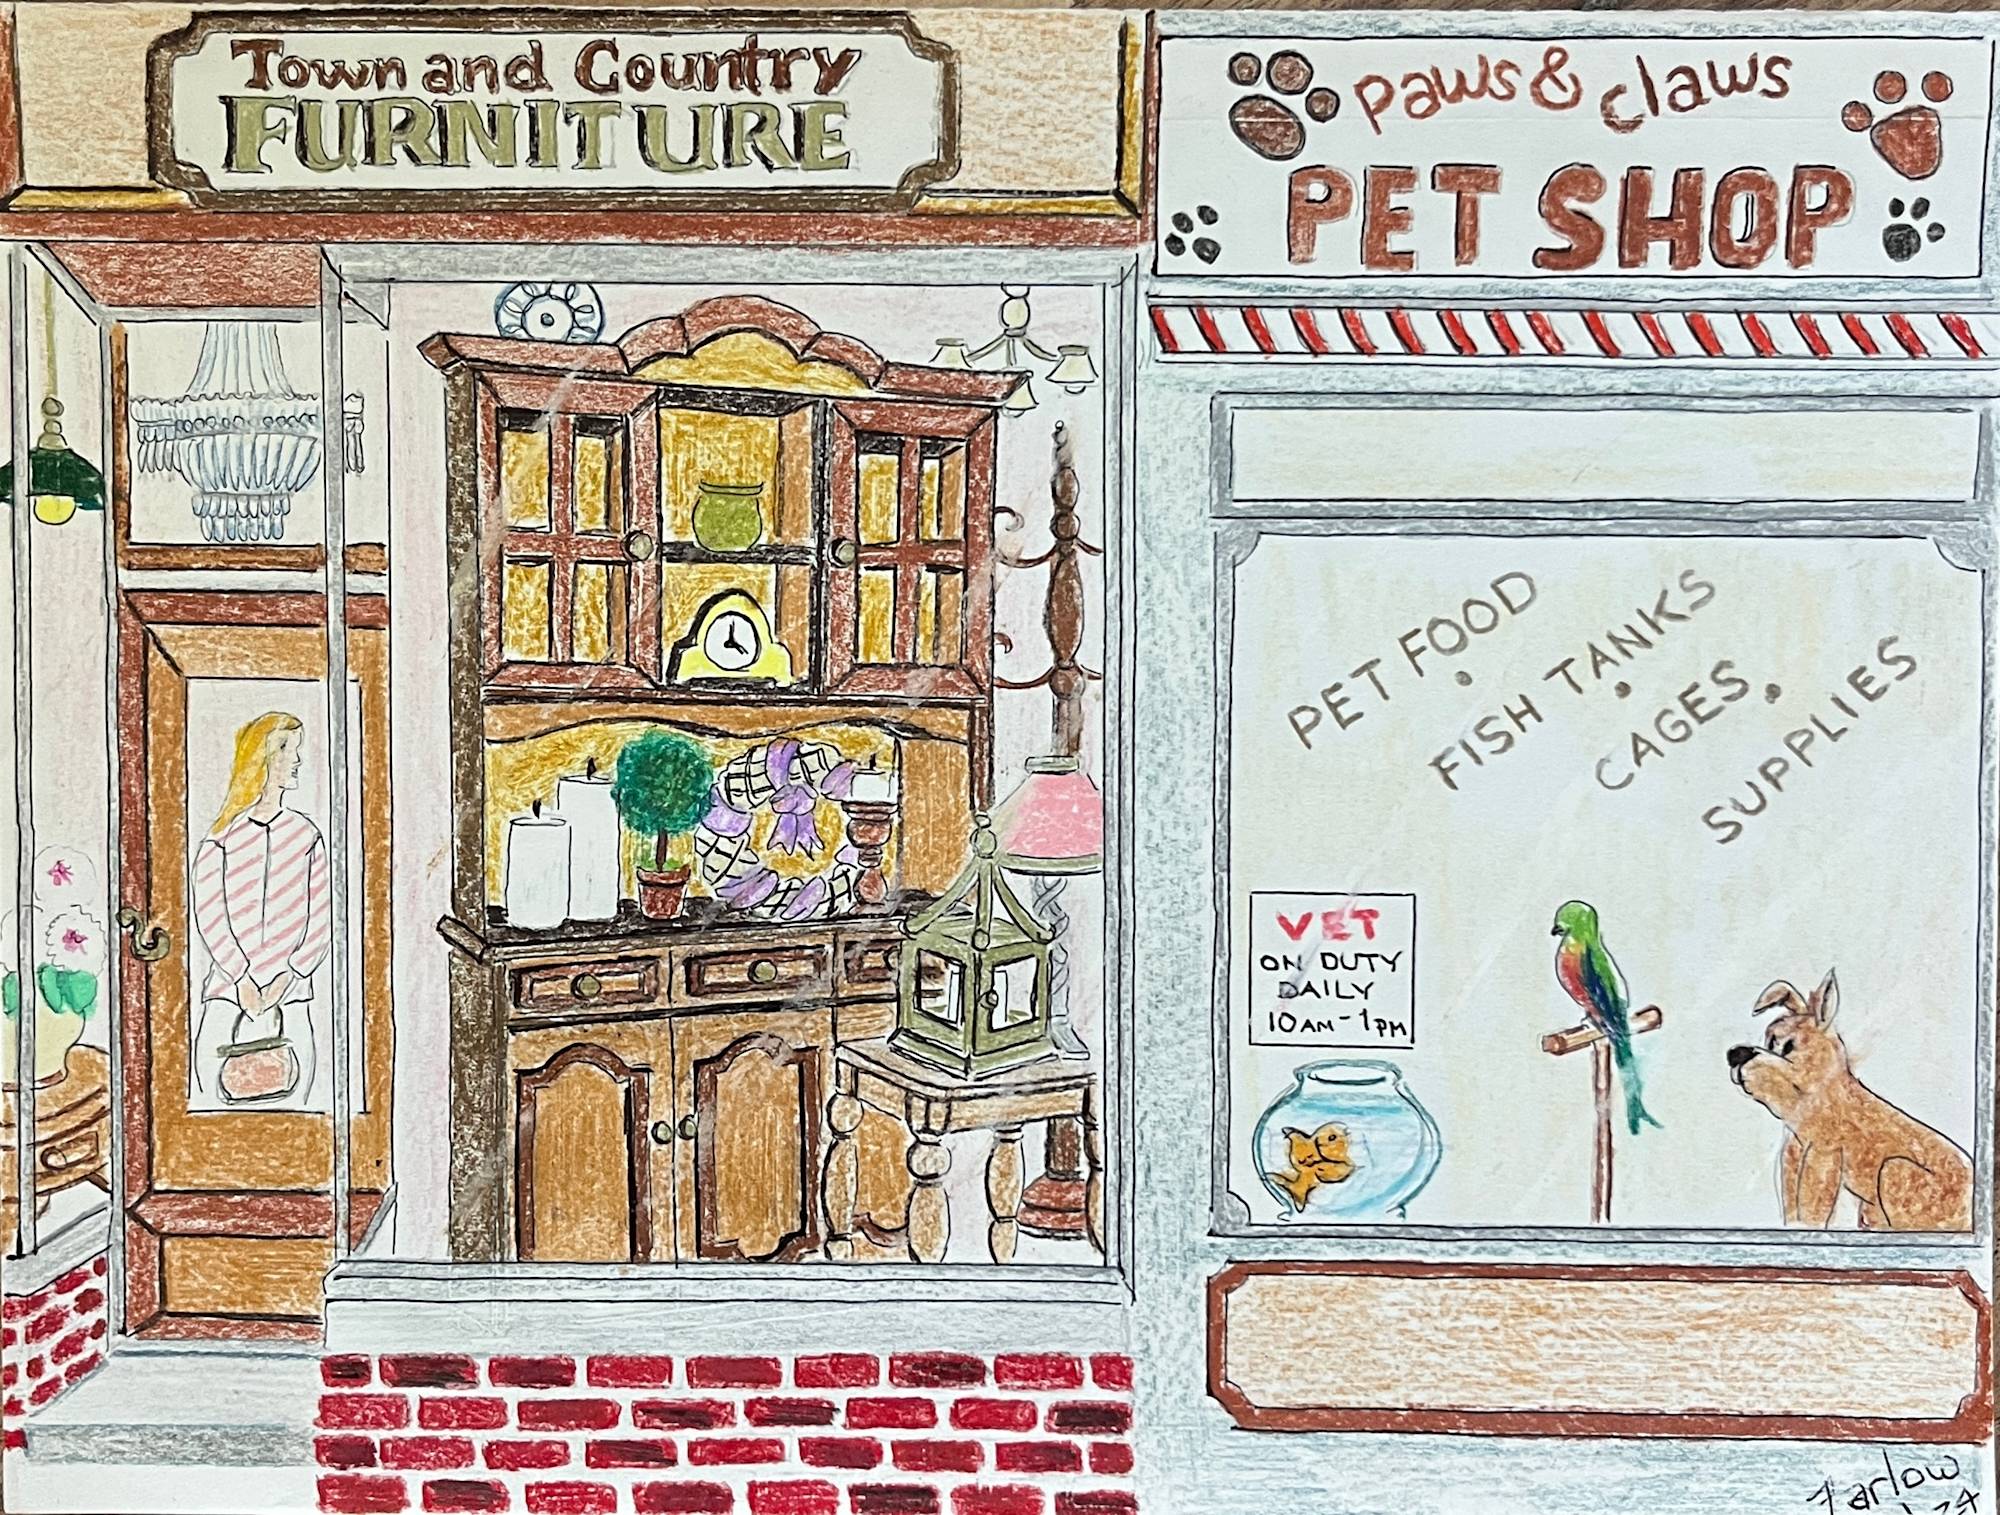 Town and Country
FURNITURE
paws & claws
PET SHOP
PET FOOD
•
FISH TANKS
•
CAGES •
SUPPLIES
VET
ON DUTY
DAILY
10AM-1PM
Farlow